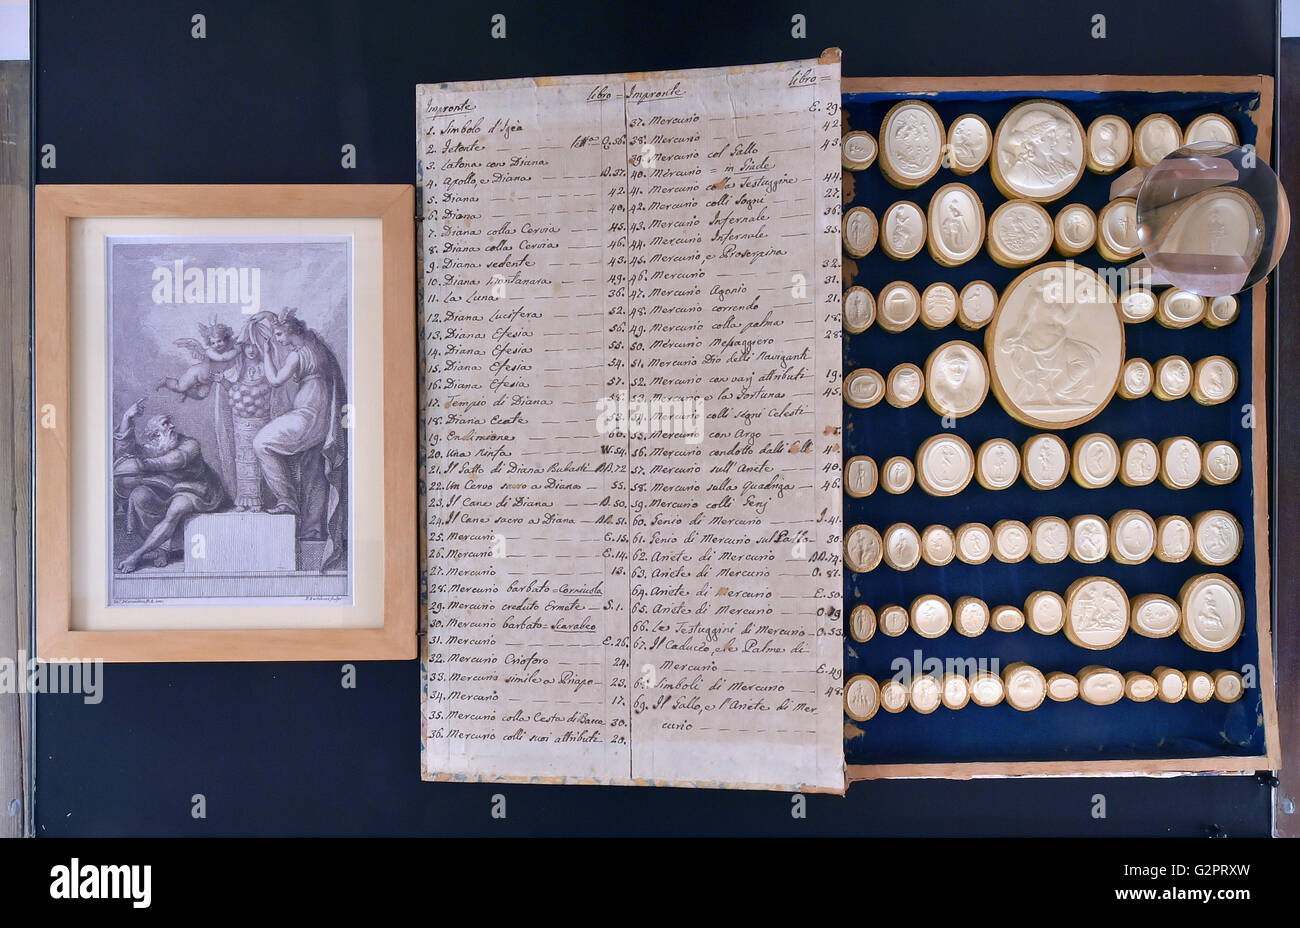 Impronte libro =
1. Simbolo d'Igèa
2. Jetonte
3. Latona con Diana
4. Apollo, e Diana
5. Diana
6. Diana
7. Diana colla Cervia
8. Diana colla Cervia
9. Diana sedente
10. Diana Montanara
11. La Luna
12. Diana Lucifera
13. Diana Efesia
14. Diana Efesia
15. Diana Efesia
16. Diana Efesia
17. Tempio di Diana
18. Diana Ecate
19. Endimione
20. Una Ninfa
21. Il Gatto di Diana Bubasti
22. Un Cervo sacro a Diana
23. Il Cane di Diana
24. Il Cane sacro a Diana
25. Mercurio E. 15.
26. Mercurio E. 14.
27. Mercurio 13.
28. Mercurio barbato = Corniuola
29. Mercurio creduto Ermete S. 1.
30. Mercurio barbato = Scarabeo
31. Mercurio E. 26.
32. Mercurio Crioforo 24.
33. Mercurio simile a Priapo 23.
34. Mercurio 17.
35. Mercurio colla Cesta di Bacco 30.
36. Mercurio colli suoi attributi 20.
Impronte libro =
37. Mercurio E. 29.
38. Mercurio 42.
39. Mercurio col Gallo 43.
40. Mercurio = in Giade
41. Mercurio colla Testuggine 44.
42. Mercurio colli Sogni 27.
43. Mercurio Infernale 36.
44. Mercurio Infernale 35.
45. Mercurio, e Proserpina
46. Mercurio 32.
47. Mercurio Agonio 31.
48. Mercurio correndo 21.
49. Mercurio colla palma 18.
50. Mercurio Messaggiero 28.
51. Mercurio Dio delli Naviganti
52. Mercurio con varj attributi 19.
53. Mercurio e la Fortuna 45.
54. Mercurio colli Segni Celesti
55. Mercurio con Argo
56. Mercurio condotto dalli Galli
57. Mercurio sull'Ariete 40.
58. Mercurio sulla Quadriga 46.
59. Mercurio colli Genj
60. Genio di Mercurio J. 41.
61. Genio di Mercurio sul Gallo 30.
62. Ariete di Mercurio AA. 74.
63. Ariete di Mercurio O. 87.
64. Ariete di Mercurio E. 50.
65. Ariete di Mercurio
66. Le Testuggini di Mercurio O. 53.
67. Il Caduceo, e le Palme di
Mercurio E. 49
68. Simboli di Mercurio 48.
69. Il Gallo, e l'Ariete di Mer-
curio
alamy
a
Image ID: G2PRXW
www.alamy.com